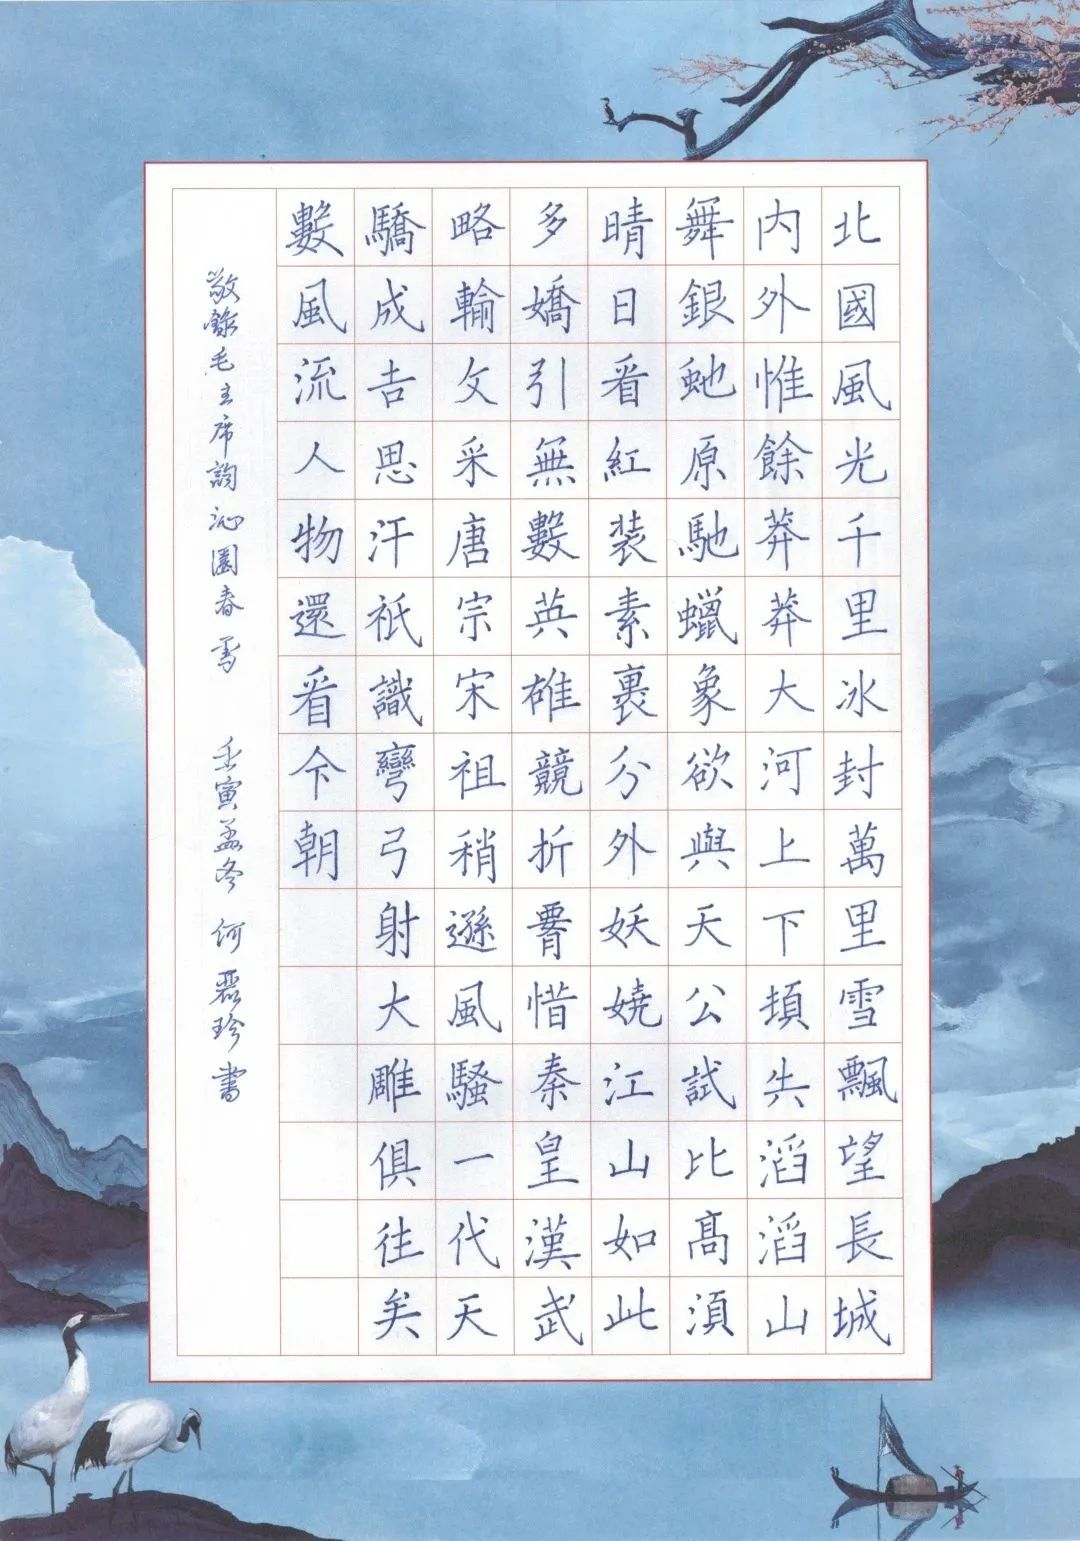 北國風光千里冰封萬里雪飄望長城
內外惟餘莽莽大河上下頓失滔滔山
舞銀虵原馳蠟象欲與天公試比高須
晴日看紅裝素裹分外妖嬈江山如此
多嬌引無數英雄競折要惜秦皇漢武
略輸文采唐宗宋祖稍遜風騷一代天
驕成吉思汗祇識彎弓射大雕俱往矣
數風流人物還看今朝
敬錄毛主席詞沁園春雪 壬寅孟冬 何磊珍書